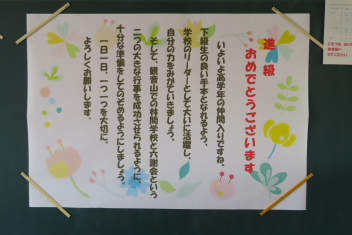 進級
おめでとうございます
いよいよ高学年の仲間入りですね。
下級生の良い手本となれるよう、
学校のリーダーとして大いに活躍し、
自分の力をみがいていきましょう。
そして、観音山での林間学校と六謝会という
二つの大きな行事を成功させられるように、
十分な準備をしてのぞめるようにしましょう。
一日一日、一つ一つを大切に、
よろしくお願いします。